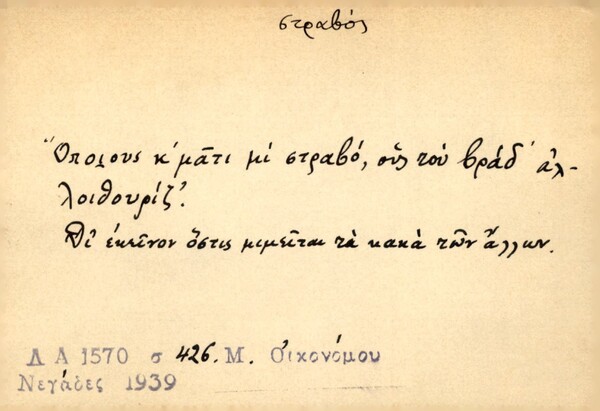 στραβός
Ὅποιους κ'μᾶτι μὶ στραβό, οὓς τοὺ βράδ' ἀλ-
λοιθουρίζ'.
Δι' ἐκεῖνον ὅστις μιμεῖται τὰ κακὰ τῶν ἄλλων.
Λ Α 1570 σ 426. Μ. Οἰκονόμου
Νεγάδες 1939